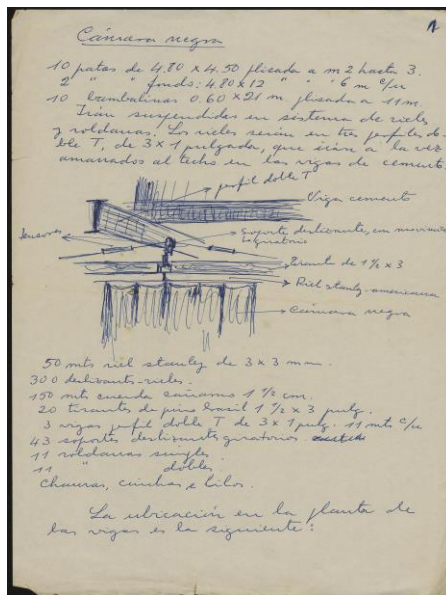 1
Cámara negra
10 patas de 4.80 x 4.50 plisada a m 2 hasta 3.
2 " " fondo: 4.80 x 12 " " 6 m c/u
10 bambalinas 0.60 x 21 m plisada a 11 m.
Irán suspendidas en sistema de rieles
y roldanas. Los rieles serán en tres perfiles do-
ble T, de 3 x 1 pulgada, que irán a la vez
amarrados al techo en las vigas de cemento
perfil doble T
Viga cemento
Tensores
Soporte deslizante, con movimiento
giratorio
Tirante de 1 1/2 x 3
Riel stanley-americana
Cámara negra
50 mts riel stanley de 3 x 3 mm.
300 deslizants-rieles.
150 mts cuerda cáñamo 1 1/2 cm.
20 tirantes de pino brasil 1 1/2 x 3 pulg.
3 vigas perfil doble T de 3 x 1 pulg. 11 mts c/u
43 soportes deslizantes giratorios
11 roldanas simples
11 " dobles.
cinchas e hilos.
La ubicación en la planta de
las vigas es la siguiente: